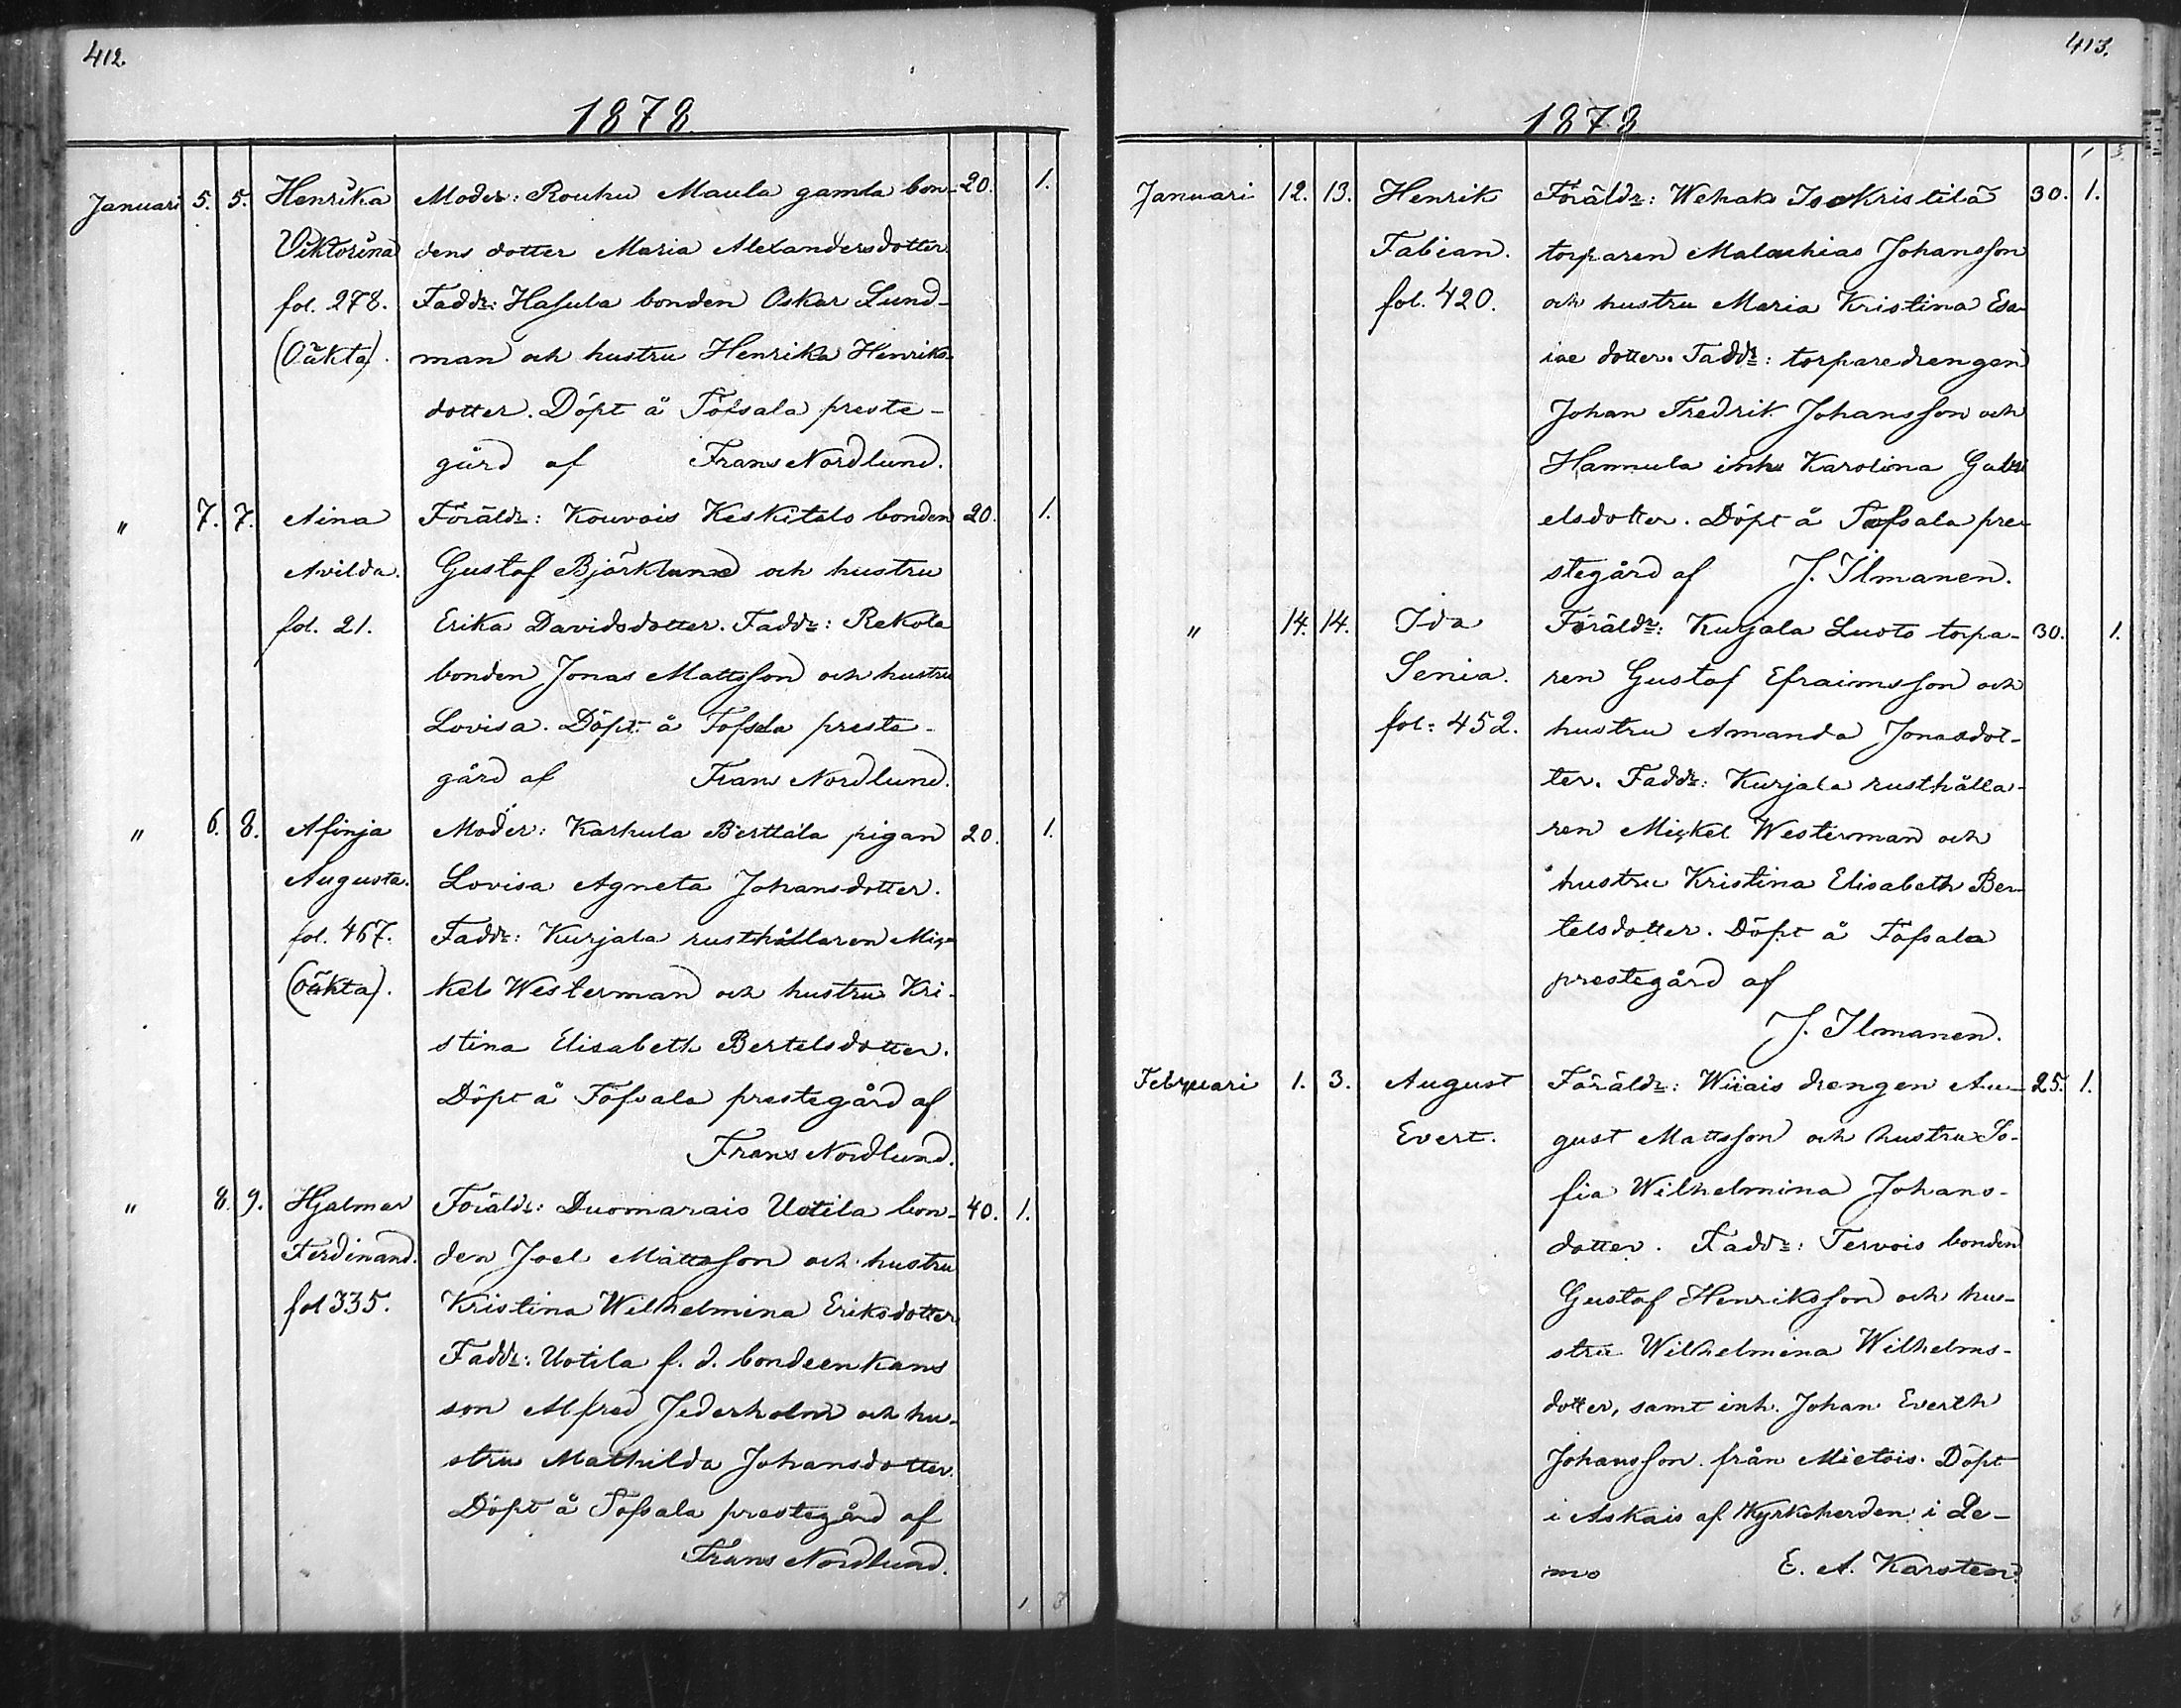 412.
1878.
Januari 5. 5. Henrika Moder: Rouhu Maula gamla bon- 20. 1.
Viktorina dens dotter Maria Alexandersdotter
fol. 278. Faddr: Hasula bonden Oskar Lund-
(Oäkta). man och hustru Henrika Henriks-
dotter. Döpt å Töfsala preste-
gård af Frans Nordlund.
" 7. 7. Aina Föräldr: Kouvois Keskitalo bonden 20. 1.
Avilda. Gustaf Björklund och hustru
fol. 21. Erika Davidsdotter. Faddr: Rekola
bonden Jonas Mattsson och hustru
Lovisa. Döpt å Töfsala preste-
gård af Frans Nordlund.
" 6. 8. Afinja Moder: Karhula Berttala pigan 20. 1.
Augusta. Lovisa Agneta Johansdotter.
fol. 467. Faddr: Kurjala rusthållaren Mic-
(Oäkta). kel Westerman och hustru Kri-
stina Elisabeth Bertelsdotter.
Döpt å Töfsala prestegård af
Frans Nordlund.
" 8. 9. Hjalmar Föräldr: Duomarais Uotila bon- 40. 1.
Ferdinand. den Joel Mattsson och hustru
fol 335. Kristina Wilhelmina Eriksdotter
Faddr: Uotila f. d. bondeenkans
son Alfred Jederholm och hu-
stru Mathilda Johansdotter.
Döpt å Töfsala prestegård af
Frans Nordlund.
1 3
413.
1878
1 3.
Januari 12. 13. Henrik Föräldr: Wehaks Isokristilä 30. 1.
Fabian. torparen Malachias Johansson
fol. 420. och hustru Maria Kristina Esa-
iae dotter. Faddr: torparedrengen
Johan Fredrik Johansson och
Hannula inh. Karolina Gabri
elsdotter. Döpt å Töfsala pre-
stegård af J. Ilmanen.
" 14. 14. Ida Föräldr: Kurjala Luoto torpa- 30. 1.
Senia. ren Gustaf Efraimsson och
fol: 452. hustru Amanda Jonasdot-
ter. Faddr: Kurjala rusthålla-
ren Mickel Westerman och
hustru Kristina Elisabeth Ber-
telsdotter. Döpt å Töfsala
prestegård af
J. Ilmanen.
Februari 1. 3. August Föräldr: Wiiais drengen Au- 25. 1.
Evert. gust Mattsson och hustru So-
fia Wilhelmina Johans-
dotter. Faddr: Tervois bonden
Gustaf Henriksson och hus-
stru Wilhelmina Wilhelms-
dotter, samt inh. Johan Everth
Johansson från Mietois. Döpt
i Askais af Kyrkoherden i Le-
mo E. A. Karsten.
3 4